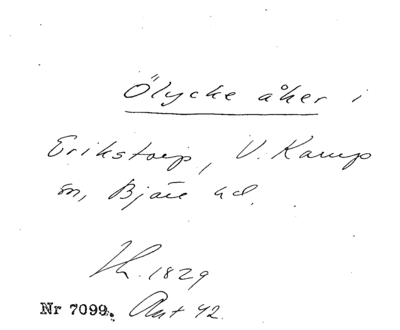 Ölycke åker i
Erikstorp, V. Karup
sn, Bjäre hd.
1829
Nr 7099. Akt 42.